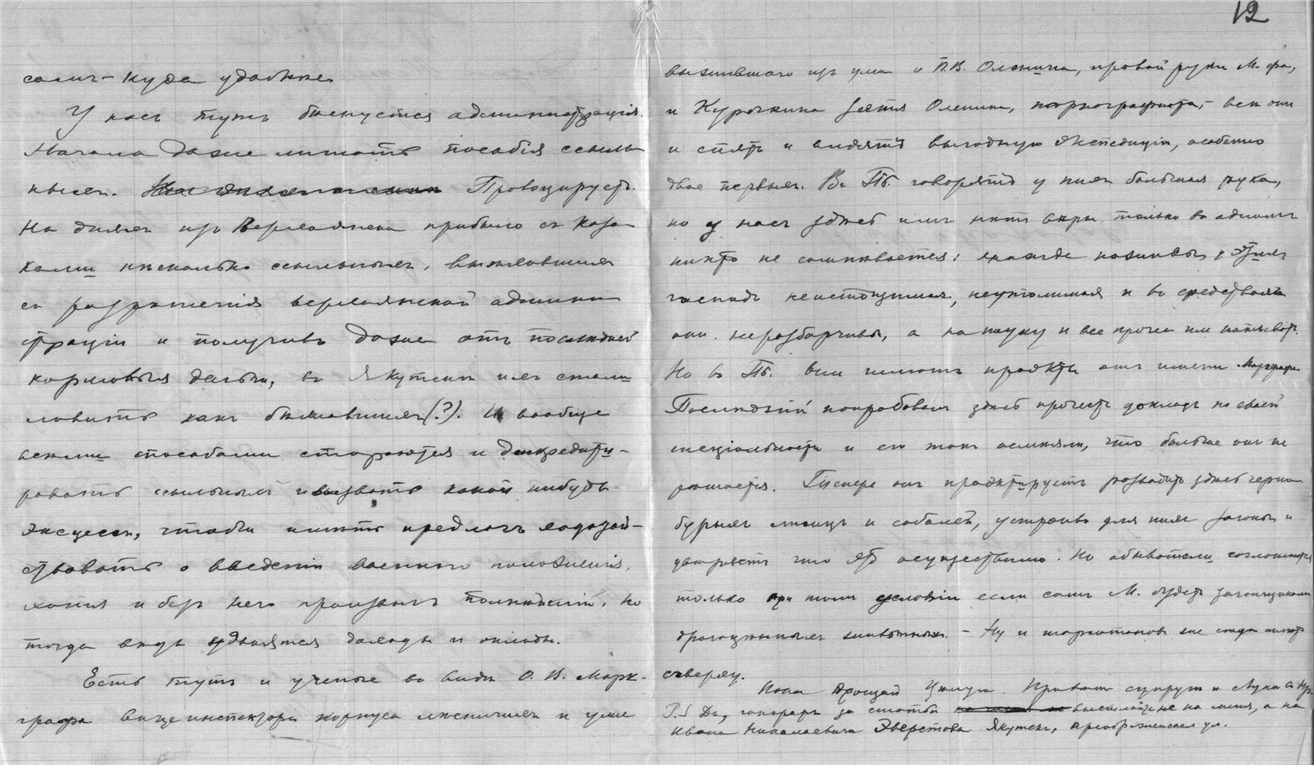 12
самъ – куда удобнѣе.
У насъ тутъ администрація.
Начала даже лишать пособія ссыль
ныхъ. Провоцируетъ.
На дняхъ изъ Верхоянска прибыло съ каза
ками нѣсколько ссыльныхъ,
съ разрѣшенія верхоянской админи
страціи и получивъ даже отъ послѣдней
кормовыя деньги, въ Якутскѣ ихъ стали
ловить какъ бѣжавшихъ (?). И вообще
всѣми способами стараются и дискредити-
ровать ссыльныхъ и вызвать какой нибудь
эксцессъ, чтобы имѣть предлогъ ходатай-
ствовать о введеніи военнаго положенія,
хотя и безъ него произволъ полнѣйшій, но
тогда вѣдь удвоятся доходы и оклады.
Есть тутъ и ученые въ видѣ О. В. Марк-
графа вице инспектора корпуса лѣсничихъ и уже
выжившаго изъ ума и П. В. Оленина, правой руки М-фа,
и Курочкина зятя Оленина, порнографиста, – всѣ они
и спятъ и видятъ выгодную экспедицію, особенно
двое первыхъ. Въ Пб. говорятъ у нихъ большая рука,
но у насъ здѣсь имъ нѣтъ вѣры, только въ одномъ
никто не сомнѣвается: жажда наживы у этихъ
господъ неистощимая, неутолимая и въ средствахъ
они неразборчивы, а на науку и все прочее имъ наплевать.
Но въ Пб. они шлютъ проэкты отъ имени Маркграфа.
Послѣдній попробовалъ здѣсь прочесть докладъ по своей
спеціальности и его такъ осмѣяли, что больше онъ не
рѣшается. Теперь онъ проэктируетъ разводить здѣсь черно
бурыхъ лисицъ и соболей, устроивъ для нихъ загоны и
увѣряетъ что это осуществимо. Но обыватели соглашаются
только при томъ условіи если самъ М. будетъ загонщикомъ
драгоцѣнныхъ животныхъ. – Ну и шарлатановъ же сюда
сѣверу.
Пока прощай Привѣтъ супругѣ и
P. S. Да, гонораръ за статьи высылайте не на меня, а на
Ивана Николаевича Эверстова Якутскъ, Преображенская ул.